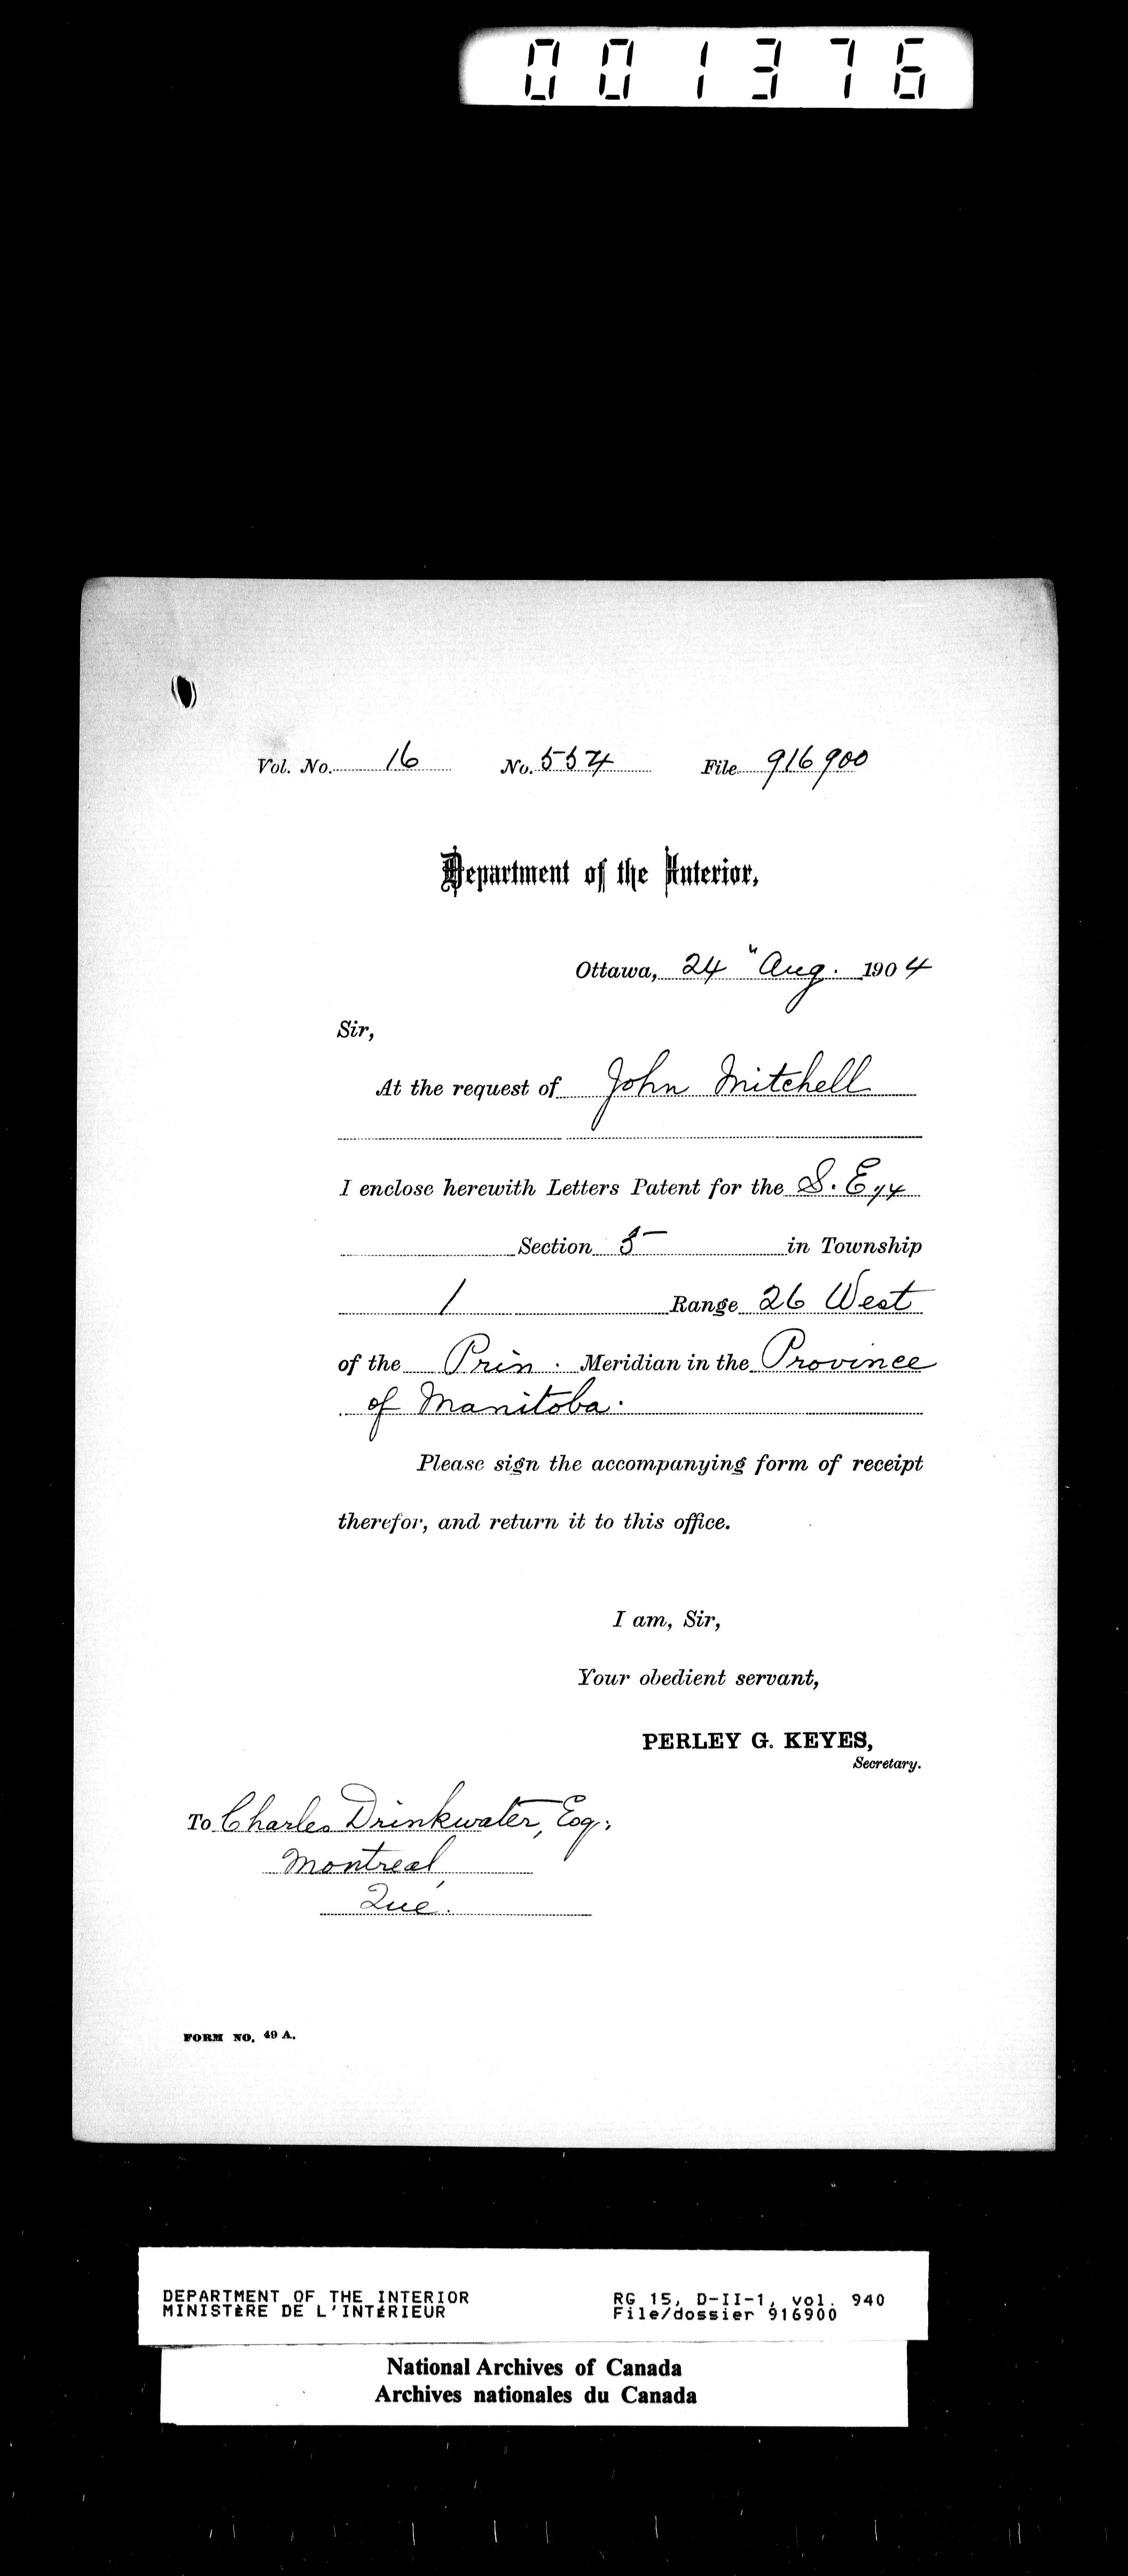 001376
Vol. No. 16 No. 554 File 916900
Department of the Interior,
Ottawa, 24" Aug. 1904
Sir,
At the request of John Mitchell
I enclose herewith Letters Patent for the S. E 1/4
Section 5 in Township
1 Range 26 West
of the Prin. Meridian in the Province
of Manitoba.
Please sign the accompanying form of receipt
therefor, and return it to this office.
I am, Sir,
Your obedient servant,
PERLEY G. KEYES,
Secretary.
To Charles Drinkwater, Esq.,
Montreal,
Que.
FORM NO. 49 A.
DEPARTMENT OF THE INTERIOR RG 15, D-II-1, vol. 940
MINISTÈRE DE L'INTÉRIEUR File/dossier 916900
National Archives of Canada
Archives nationales du Canada